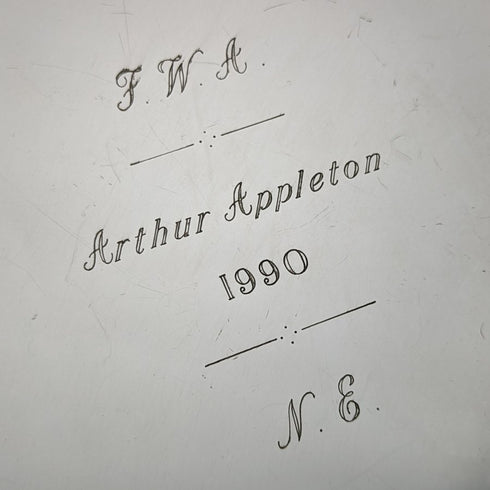 F. W. A.
Arthur Appleton
1990
N. E.